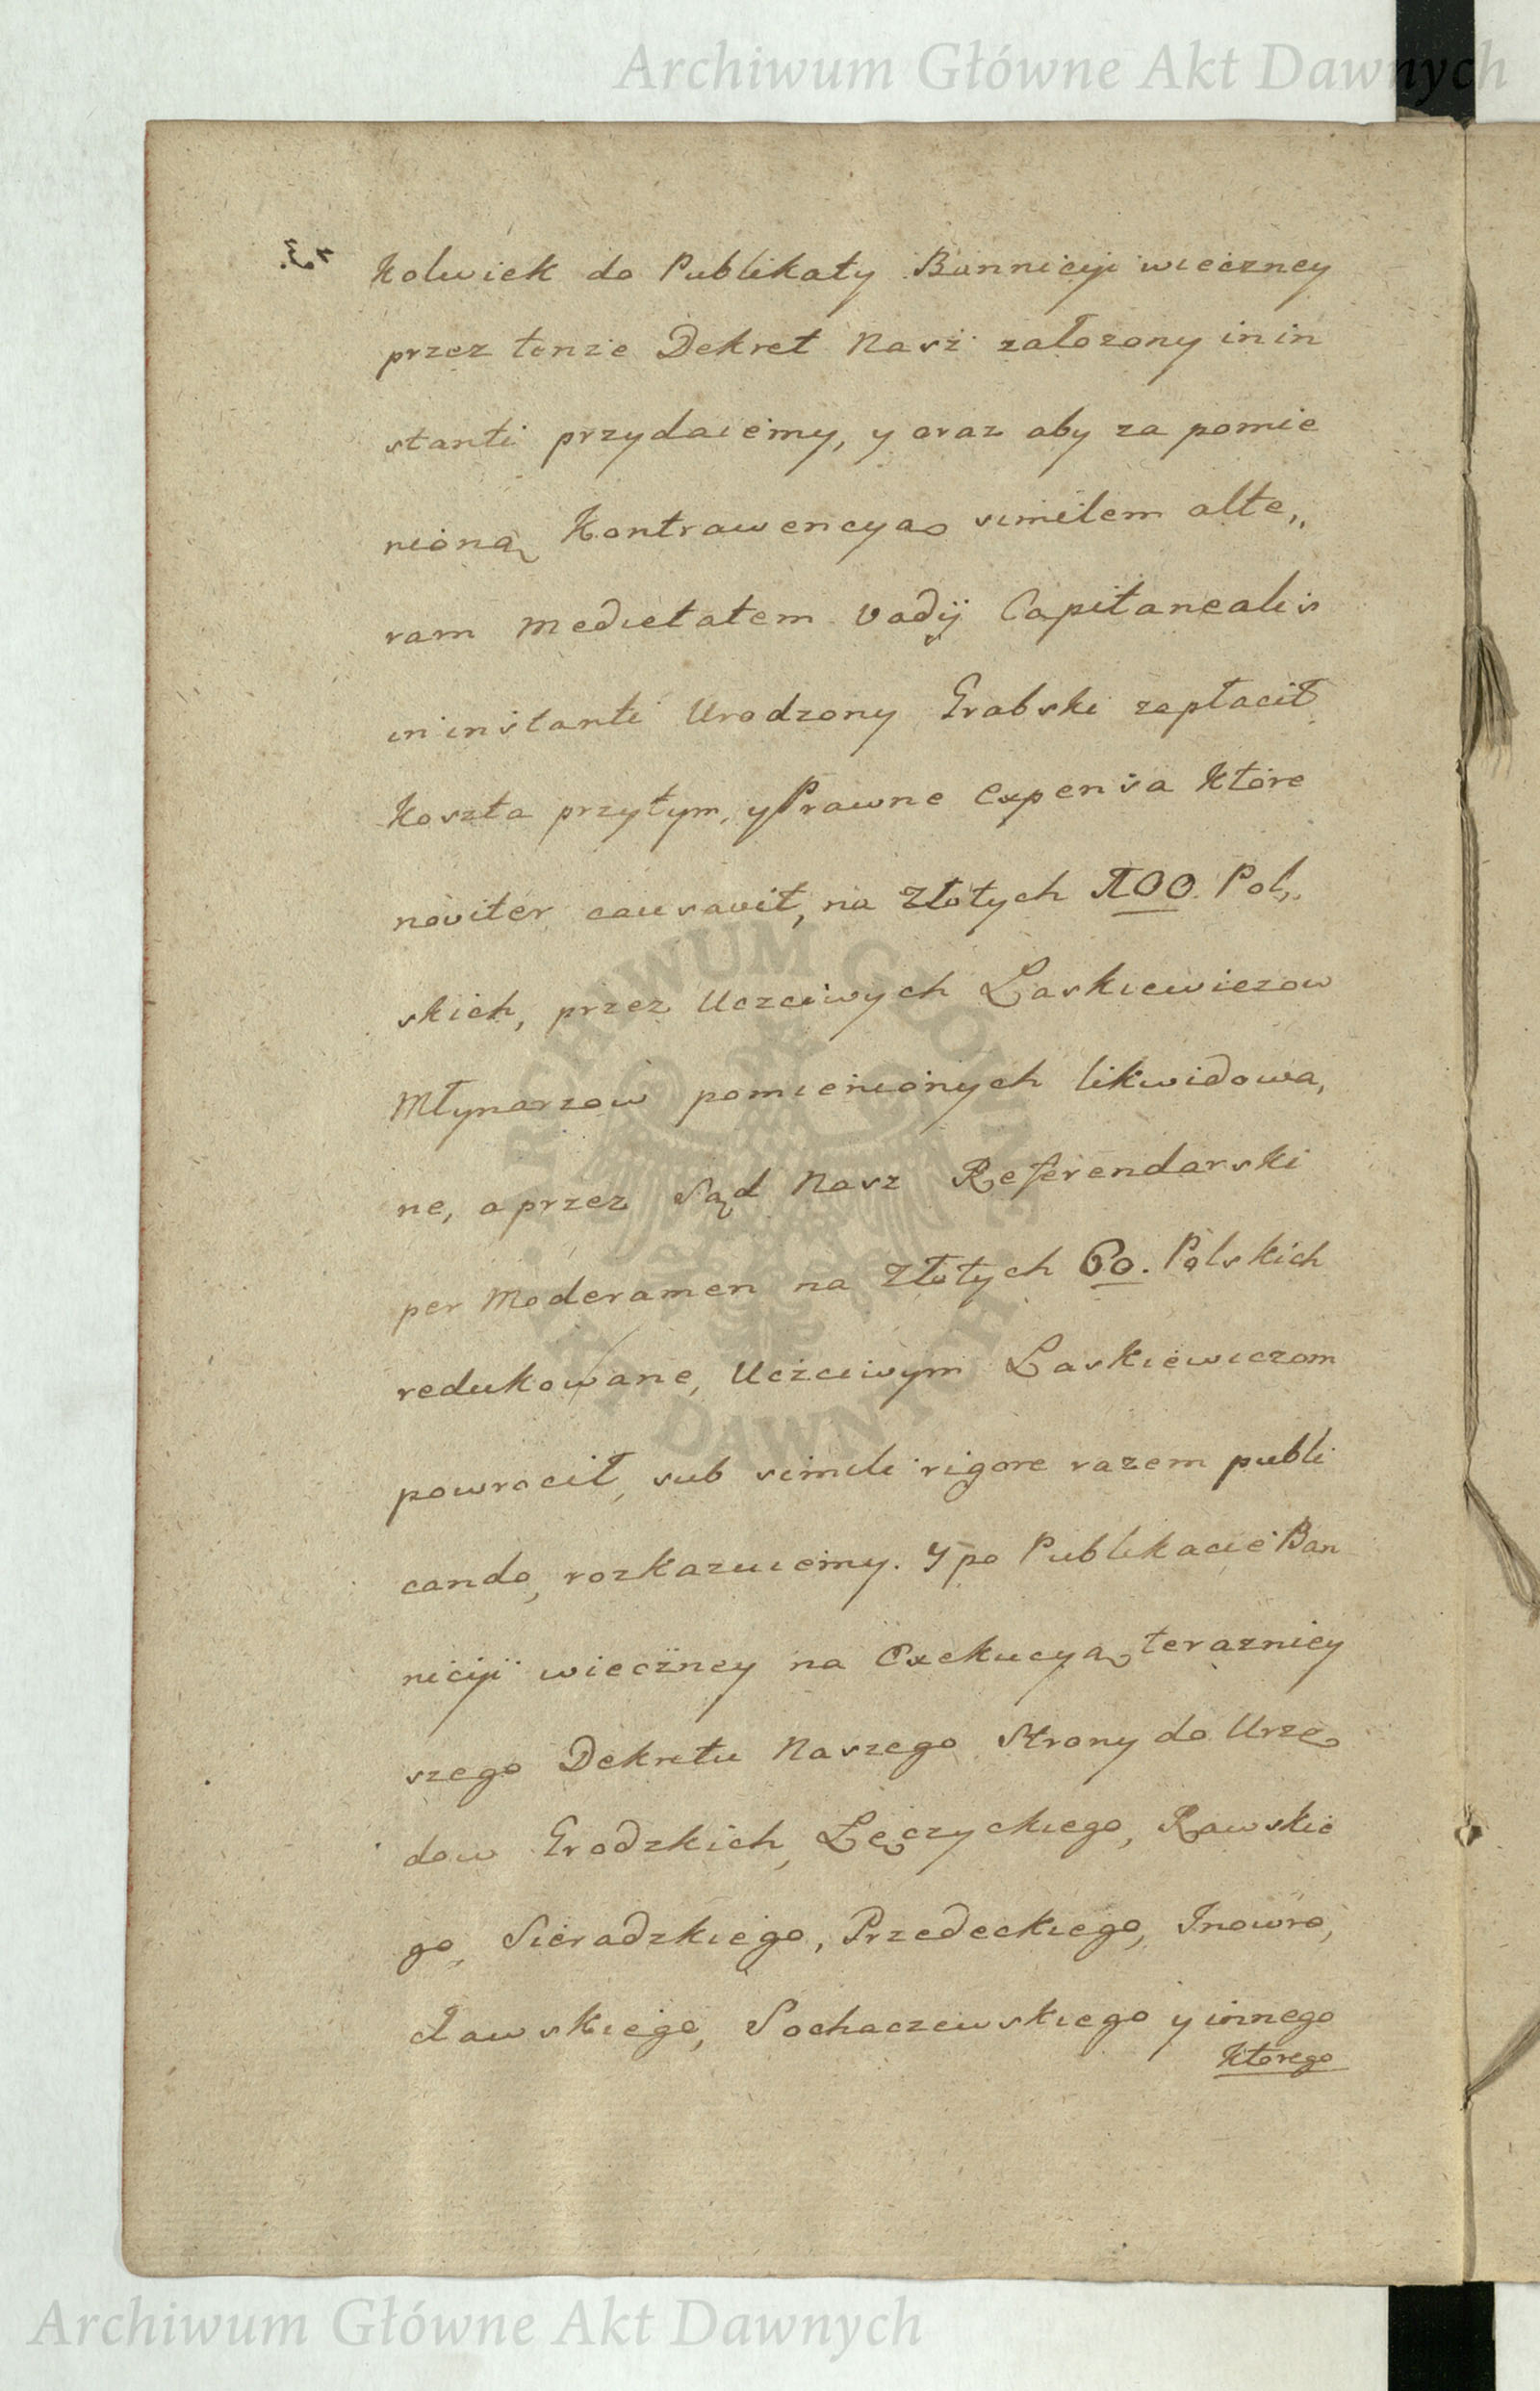 Archiwum Główne Akt Dawnych
Kolwiek do Publikaty Bannicyi wieczney
przez tenże Dekret Nasz założony in in
stanti przydaiemy, y oraz aby za pomie
nioną Kontrawencyą similem alte„
ram medietatem Vadij Capitanealis
in instanti Urodzony Grabski zapłacił
Koszta przytym, y Prawne Expensa Które
noviter causavit, na Złotych 100. Pol„
skich, przez Uczciwych Laskiewiczow
Młynarzow pomienionych likwidowa,
ne, a przez Sąd Nasz Referendarski
per Moderamen na Złotych 60. Polskich
redukowane, Uczciwym Laskiewiczom
powrocił, sub simili rigore razem publi
cando, rozkazuiemy. Y po Publikacie Ban
nicyi wieczney na Exekucyą terazniey
szego Dekretu Naszego Strony do Urzę
dow Grodzkich, Lęczyckiego, Rawskie
go, Sieradzkiego, Przedeckiego, Inowro,
cławskiego, Sochaczewskiego y innego
Ktorego
ARCHIWUM GŁÓWNE AKT DAWNYCH
Archiwum Główne Akt Dawnych